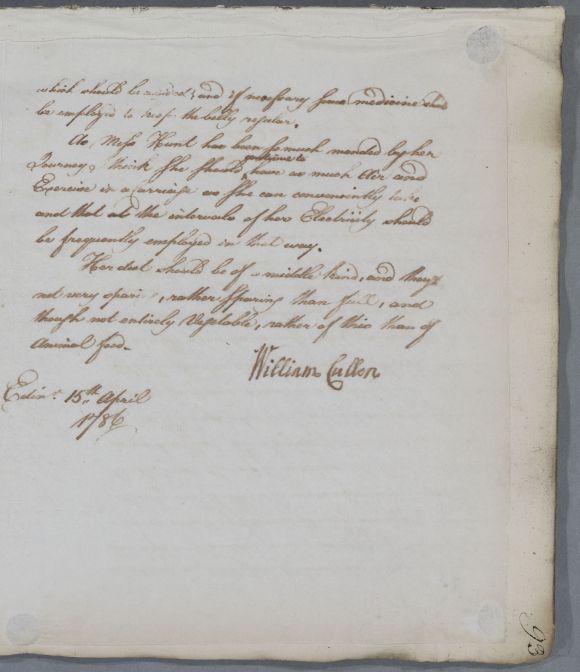 which should be avoided, and if necessary some medicine should
be employed to keep the belly regular.
As Miss Hunt has been so much mended by her
Journey I think She should continue to have as much Air and
Exercise in a carriage as She can conveniently take
and that at the intervals of her Electricity should
be frequently employed in that way.
Her diet should be of a middle kind, and they
not very sparing, rather sparing than full, and
though not entirely Vegetable, rather of this than of
Animal food.
William Cullen
Edinr. 15th April
1786
93